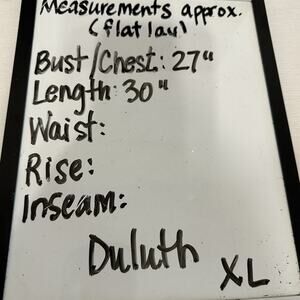 Measurements approx.
(flat lay)
Bust/Chest: 27"
Length: 30"
Waist:
Rise:
Inseam:
Duluth
XL